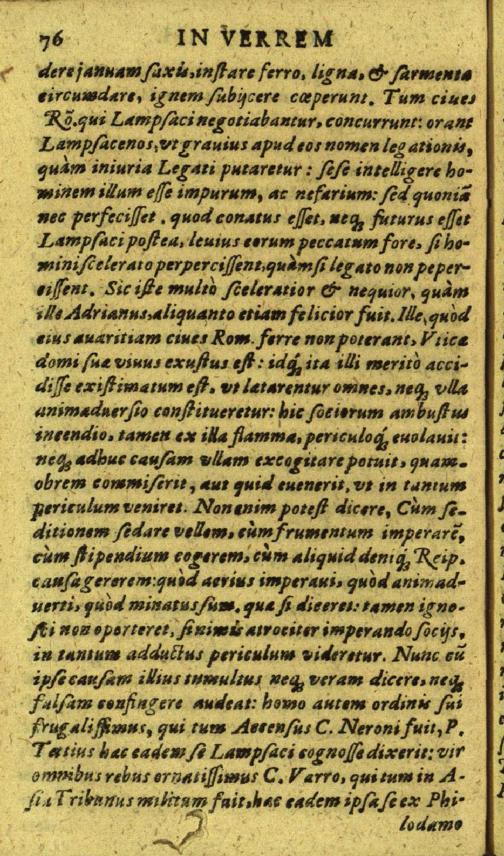 76 IN VERREM
dere januam saxis, instare ferro, ligna, & sarmenta
circumdare, ignem subijcere cœperunt. Tum ciues
Rõ. qui Lampsaci negotiabantur, concurrunt: orant
Lampsacenos, vt grauius apud eos nomen legationis,
quàm iniuria Legati putaretur: sese intelligere ho-
minem illum esse impurum, ac nefarium: sed quoniã
nec perfecisset. quod conatus esset, neq; futurus esset
Lampsaci postea, leuius eorum peccatum fore, si ho-
mini scelerato perpercissent, quàm si legato non peper-
cissent. Sic iste multò sceleratior & nequior, quàm
ille Adrianus, aliquanto etiam felicior fuit. Ille, quòd
eius auaritiam ciues Rom. ferre non poterant, Vticæ
domi suæ viuus exustus est: idq́; ita illi meritò acci-
disse existimatum est, vt lætarentur omnes, neq; vlla
animaduersio constitueretur: hic sociorum ambustus
incendio, tamen ex illa flamma, periculoq́; euolauit:
neq; adhuc causam vllam excogitare potuit, quam-
obrem commiserit, aut quid euenerit, vt in tantum
periculum veniret. Non enim potest dicere, Cùm se-
ditionem sedare vellem, cùm frumentum imperarẽ,
cùm stipendium cogerem, cùm aliquid deniq́; Reip.
causa gererem: quòd acrius imperaui, quòd animad-
uerti, quòd minatus sum, quæ si diceret: tamen igno-
sci non oporteret, si nimis atrociter imperando socijs,
in tantum adductus periculum videretur. Nunc cũ
ipse causam illius tumultus neq; veram dicere, neq;
falsam confingere audeat: homo autem ordinis sui
frugalissimus, qui tum Accensus C. Neroni fuit, P.
Tettius hæc eadem se Lampsaci cognosse dixerit: vir
omnibus rebus ornatissimus C. Varro, qui tum in A-
sia Tribunus militum fuit, hæc eadem ipsa se ex Phi-
lodamo